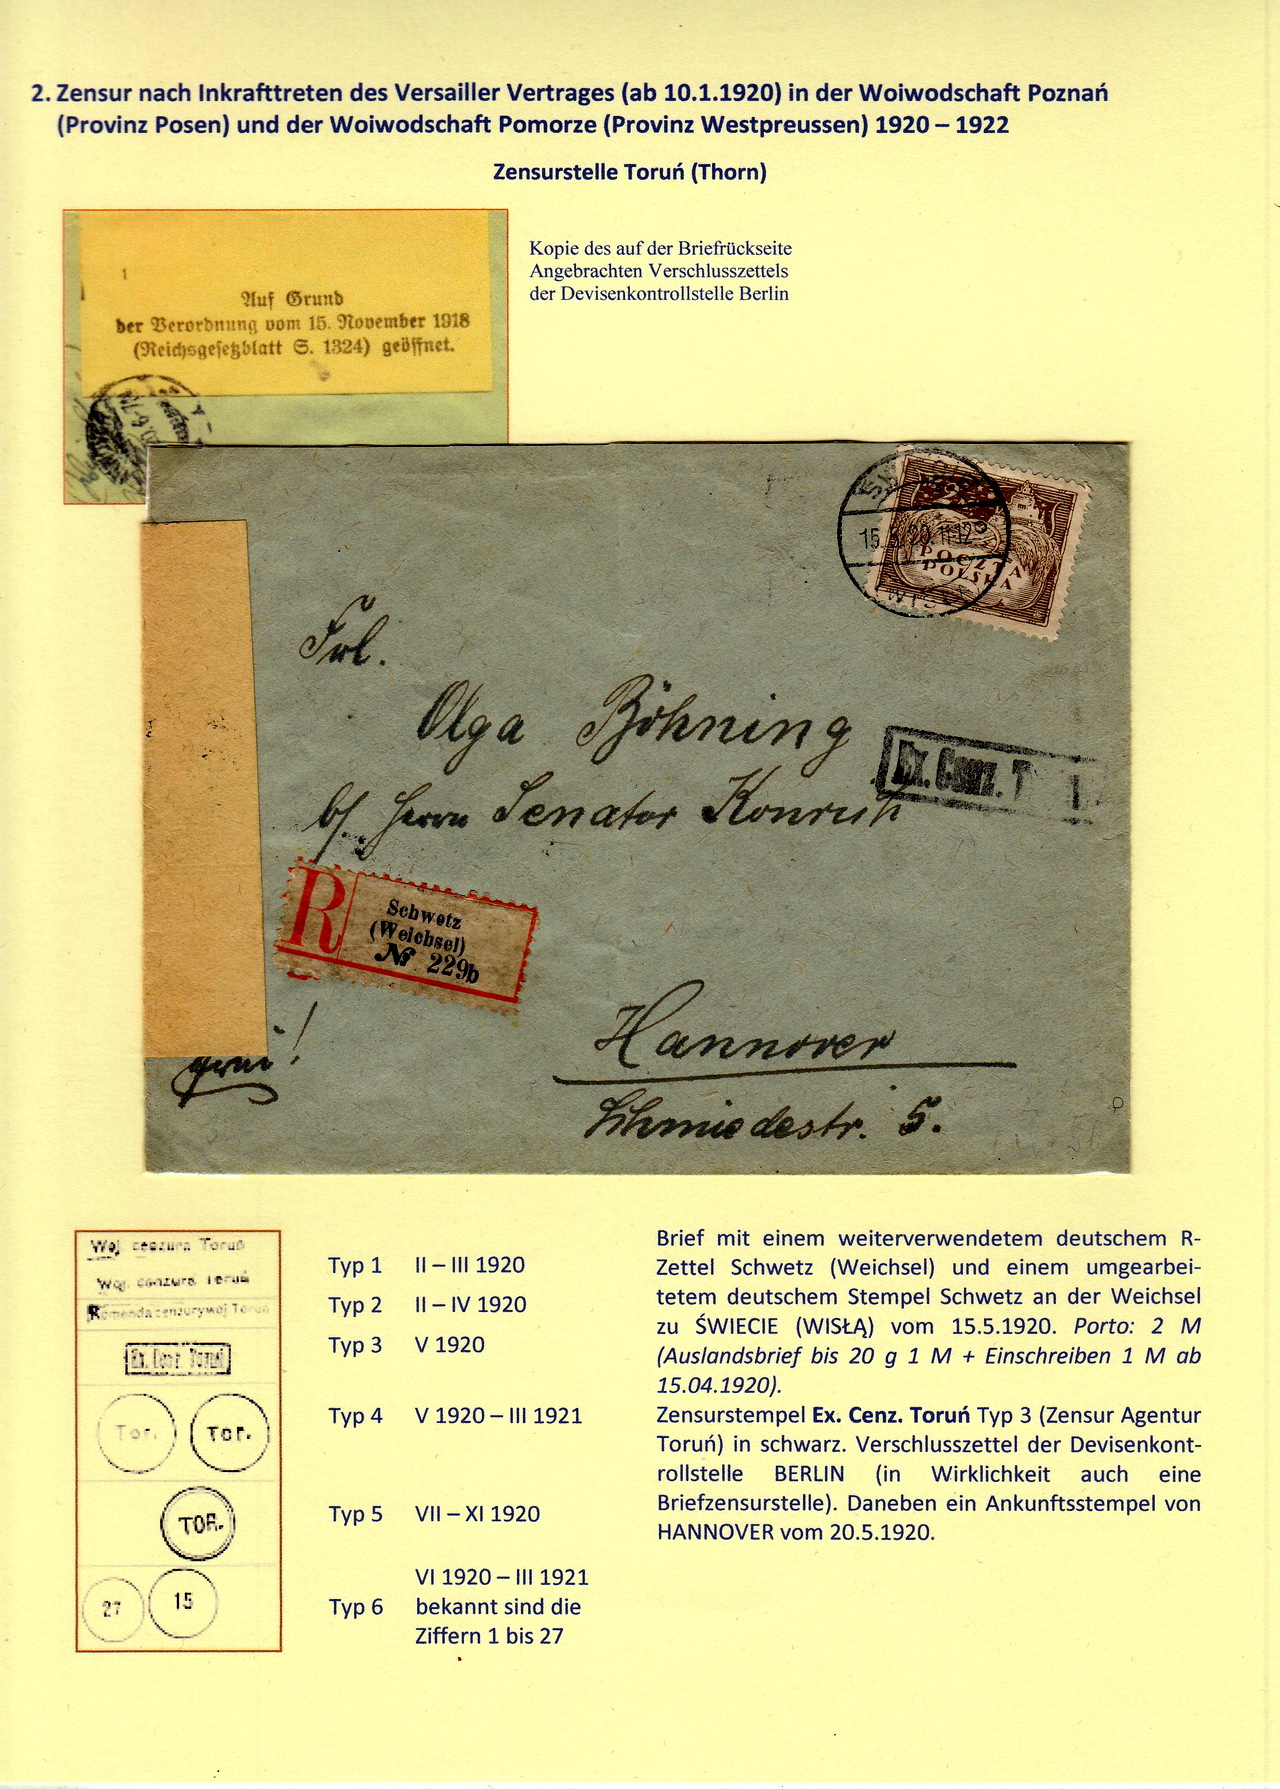 2. Zensur nach Inkrafttreten des Versailler Vertrages (ab 10.1.1920) in der Woiwodschaft Poznań
(Provinz Posen) und der Woiwodschaft Pomorze (Provinz Westpreussen) 1920 – 1922
Zensurstelle Toruń (Thorn)
1
Auf Grund
der Verordnung vom 15. November 1918
(Reichsgesetzblatt S. 1324) geöffnet.
Kopie des auf der Briefrückseite
Angebrachten Verschlusszettels
der Devisenkontrollstelle Berlin
2
POCZTA
POLSKA
15.5.20.11-12
Frl.
Olga Böhning
b/. Herrn Senator Konrich
Ex. Cenz. T
R
Schwetz
(Weichsel)
№ 229b
Hannover
Schmiedestr. 5.
Woj. cenzura Toruń
Woj. cenzura Toruń
Komenda cenzury woj Toruń
Ex. Cenz. Toruń
Tor.
Tor.
TOR.
27
15
Typ 1 II – III 1920
Typ 2 II – IV 1920
Typ 3 V 1920
Typ 4 V 1920 – III 1921
Typ 5 VII – XI 1920
VI 1920 – III 1921
Typ 6 bekannt sind die
Ziffern 1 bis 27
Brief mit einem weiterverwendetem deutschem R-
Zettel Schwetz (Weichsel) und einem umgearbei-
tetem deutschem Stempel Schwetz an der Weichsel
zu ŚWIECIE (WISŁĄ) vom 15.5.1920. Porto: 2 M
(Auslandsbrief bis 20 g 1 M + Einschreiben 1 M ab
15.04.1920).
Zensurstempel Ex. Cenz. Toruń Typ 3 (Zensur Agentur
Toruń) in schwarz. Verschlusszettel der Devisenkont-
rollstelle BERLIN (in Wirklichkeit auch eine
Briefzensurstelle). Daneben ein Ankunftsstempel von
HANNOVER vom 20.5.1920.